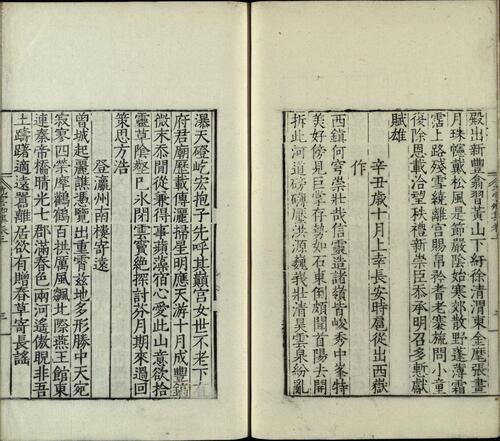 殿出新豐翁習黃山下紆徐清渭東金麾張畫
月珠幰戴松風是節嚴陰始寒郊散野蓬薄霜
霑上路殘雪繞離宮賜帛矜耆老褰旒問小童
復除恩載洽望秩禮新崇臣忝承明召多慚獻
賦雄
辛丑歲十月上幸長安時扈從出西嶽
作
西鎮何穹崇壯哉信靈造諸嶺皆峻秀中峯特
美好傍見巨掌存勢如石東倒頗聞首陽去開
拆此河道磅礴壓洪源巍我壯清昊雲泉紛亂
瀑天磴屹宏抱子先呼其巔宮女世不老下有
府君廟歷載傳灑掃星明應天游十月戒豐鎬
微末忝閒從兼得事蘋藻宿心愛此山意欲拾
靈草陰壑已永閉雲竇絕探討芬月期來過迴
策思方浩
登瀛州南樓寄遠
曾城起麗譙憑覽出重霄茲地多形勝中天宛
寂寥四榮摩鸛鶴百拱厲風飇北際燕王館東
連秦帝橋晴光七郡滿春色兩河遙傲睨非吾
土躊躇適遠囂離居欲有贈春草寄長謠